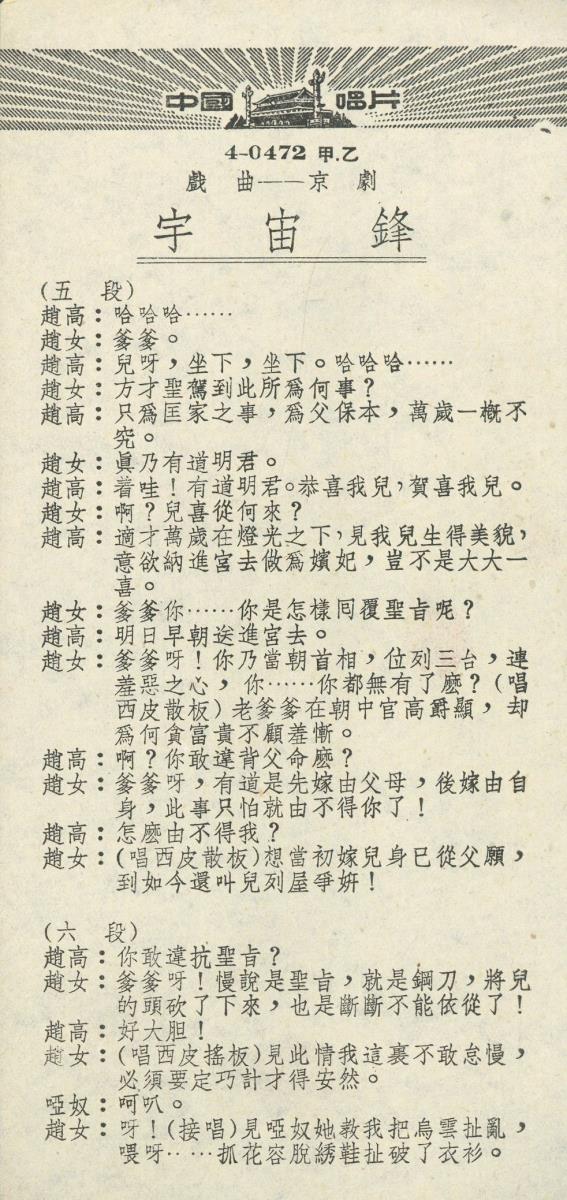 中國唱片
4-0472 甲.乙
戲 曲——京 劇
宇宙鋒
(五 段)
趙高：哈哈哈……
趙女：爹爹。
趙高：兒呀，坐下，坐下。哈哈哈……
趙女：方才聖駕到此所爲何事？
趙高：只爲匡家之事，爲父保本，萬歲一概不
究。
趙女：眞乃有道明君。
趙高：着哇！有道明君。恭喜我兒，賀喜我兒。
趙女：啊？兒喜從何來？
趙高：適才萬歲在燈光之下，見我兒生得美貌，
意欲納進宮去做爲嬪妃，豈不是大大一
喜。
趙女：爹爹你……你是怎樣囘覆聖旨呢？
趙高：明日早朝送進宮去。
趙女：爹爹呀！你乃當朝首相，位列三台，連
羞惡之心，你……你都無有了麽？(唱
西皮散板)老爹爹在朝中官高爵顯，却
爲何貪富貴不顧羞慚。
趙高：啊？你敢違背父命麽？
趙女：爹爹呀，有道是先嫁由父母，後嫁由自
身，此事只怕就由不得你了！
趙高：怎麽由不得我？
趙女：(唱西皮散板)想當初嫁兒身已從父願，
到如今還叫兒列屋爭姸！
(六 段)
趙高：你敢違抗聖旨？
趙女：爹爹呀！慢說是聖旨，就是鋼刀，將兒
的頭砍了下來，也是斷斷不能依從了！
趙高：好大胆！
趙女：(唱西皮搖板)見此情我這裏不敢怠慢，
必須要定巧計才得安然。
啞奴：呵叭。
趙女：呀！(接唱)見啞奴她教我把烏雲扯亂，
喂呀……抓花容脫綉鞋扯破了衣衫。